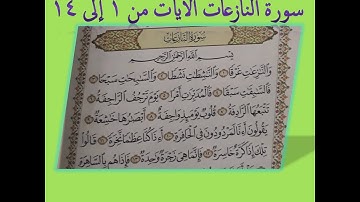 سورة النازعات الآيات من ١ إلى ١٤
سُورَةُ النَّازِعَاتِ
بِسْمِ اللَّهِ الرَّحْمَٰنِ الرَّحِيمِ
وَالنَّازِعَاتِ غَرْقًا ١ وَالنَّاشِطَاتِ نَشْطًا ٢ وَالسَّابِحَاتِ سَبْحًا ٣
فَالسَّابِقَاتِ سَبْقًا ٤ فَالْمُدَبِّرَاتِ أَمْرًا ٥ يَوْمَ تَرْجُفُ الرَّاجِفَةُ ٦
تَتْبَعُهَا الرَّادِفَةُ ٧ قُلُوبٌ يَوْمَئِذٍ وَاجِفَةٌ ٨ أَبْصَارُهَا خَاشِعَةٌ ٩
يَقُولُونَ أَءِنَّا لَمَرْدُودُونَ فِي الْحَافِرَةِ ١٠ أَءِذَا كُنَّا عِظَامًا نَّخِرَةً ١١ قَالُوا
تِلْكَ إِذًا كَرَّةٌ خَاسِرَةٌ ١٢ فَإِنَّمَا هِيَ زَجْرَةٌ وَاحِدَةٌ ١٣ فَإِذَا هُم بِالسَّاهِرَةِ